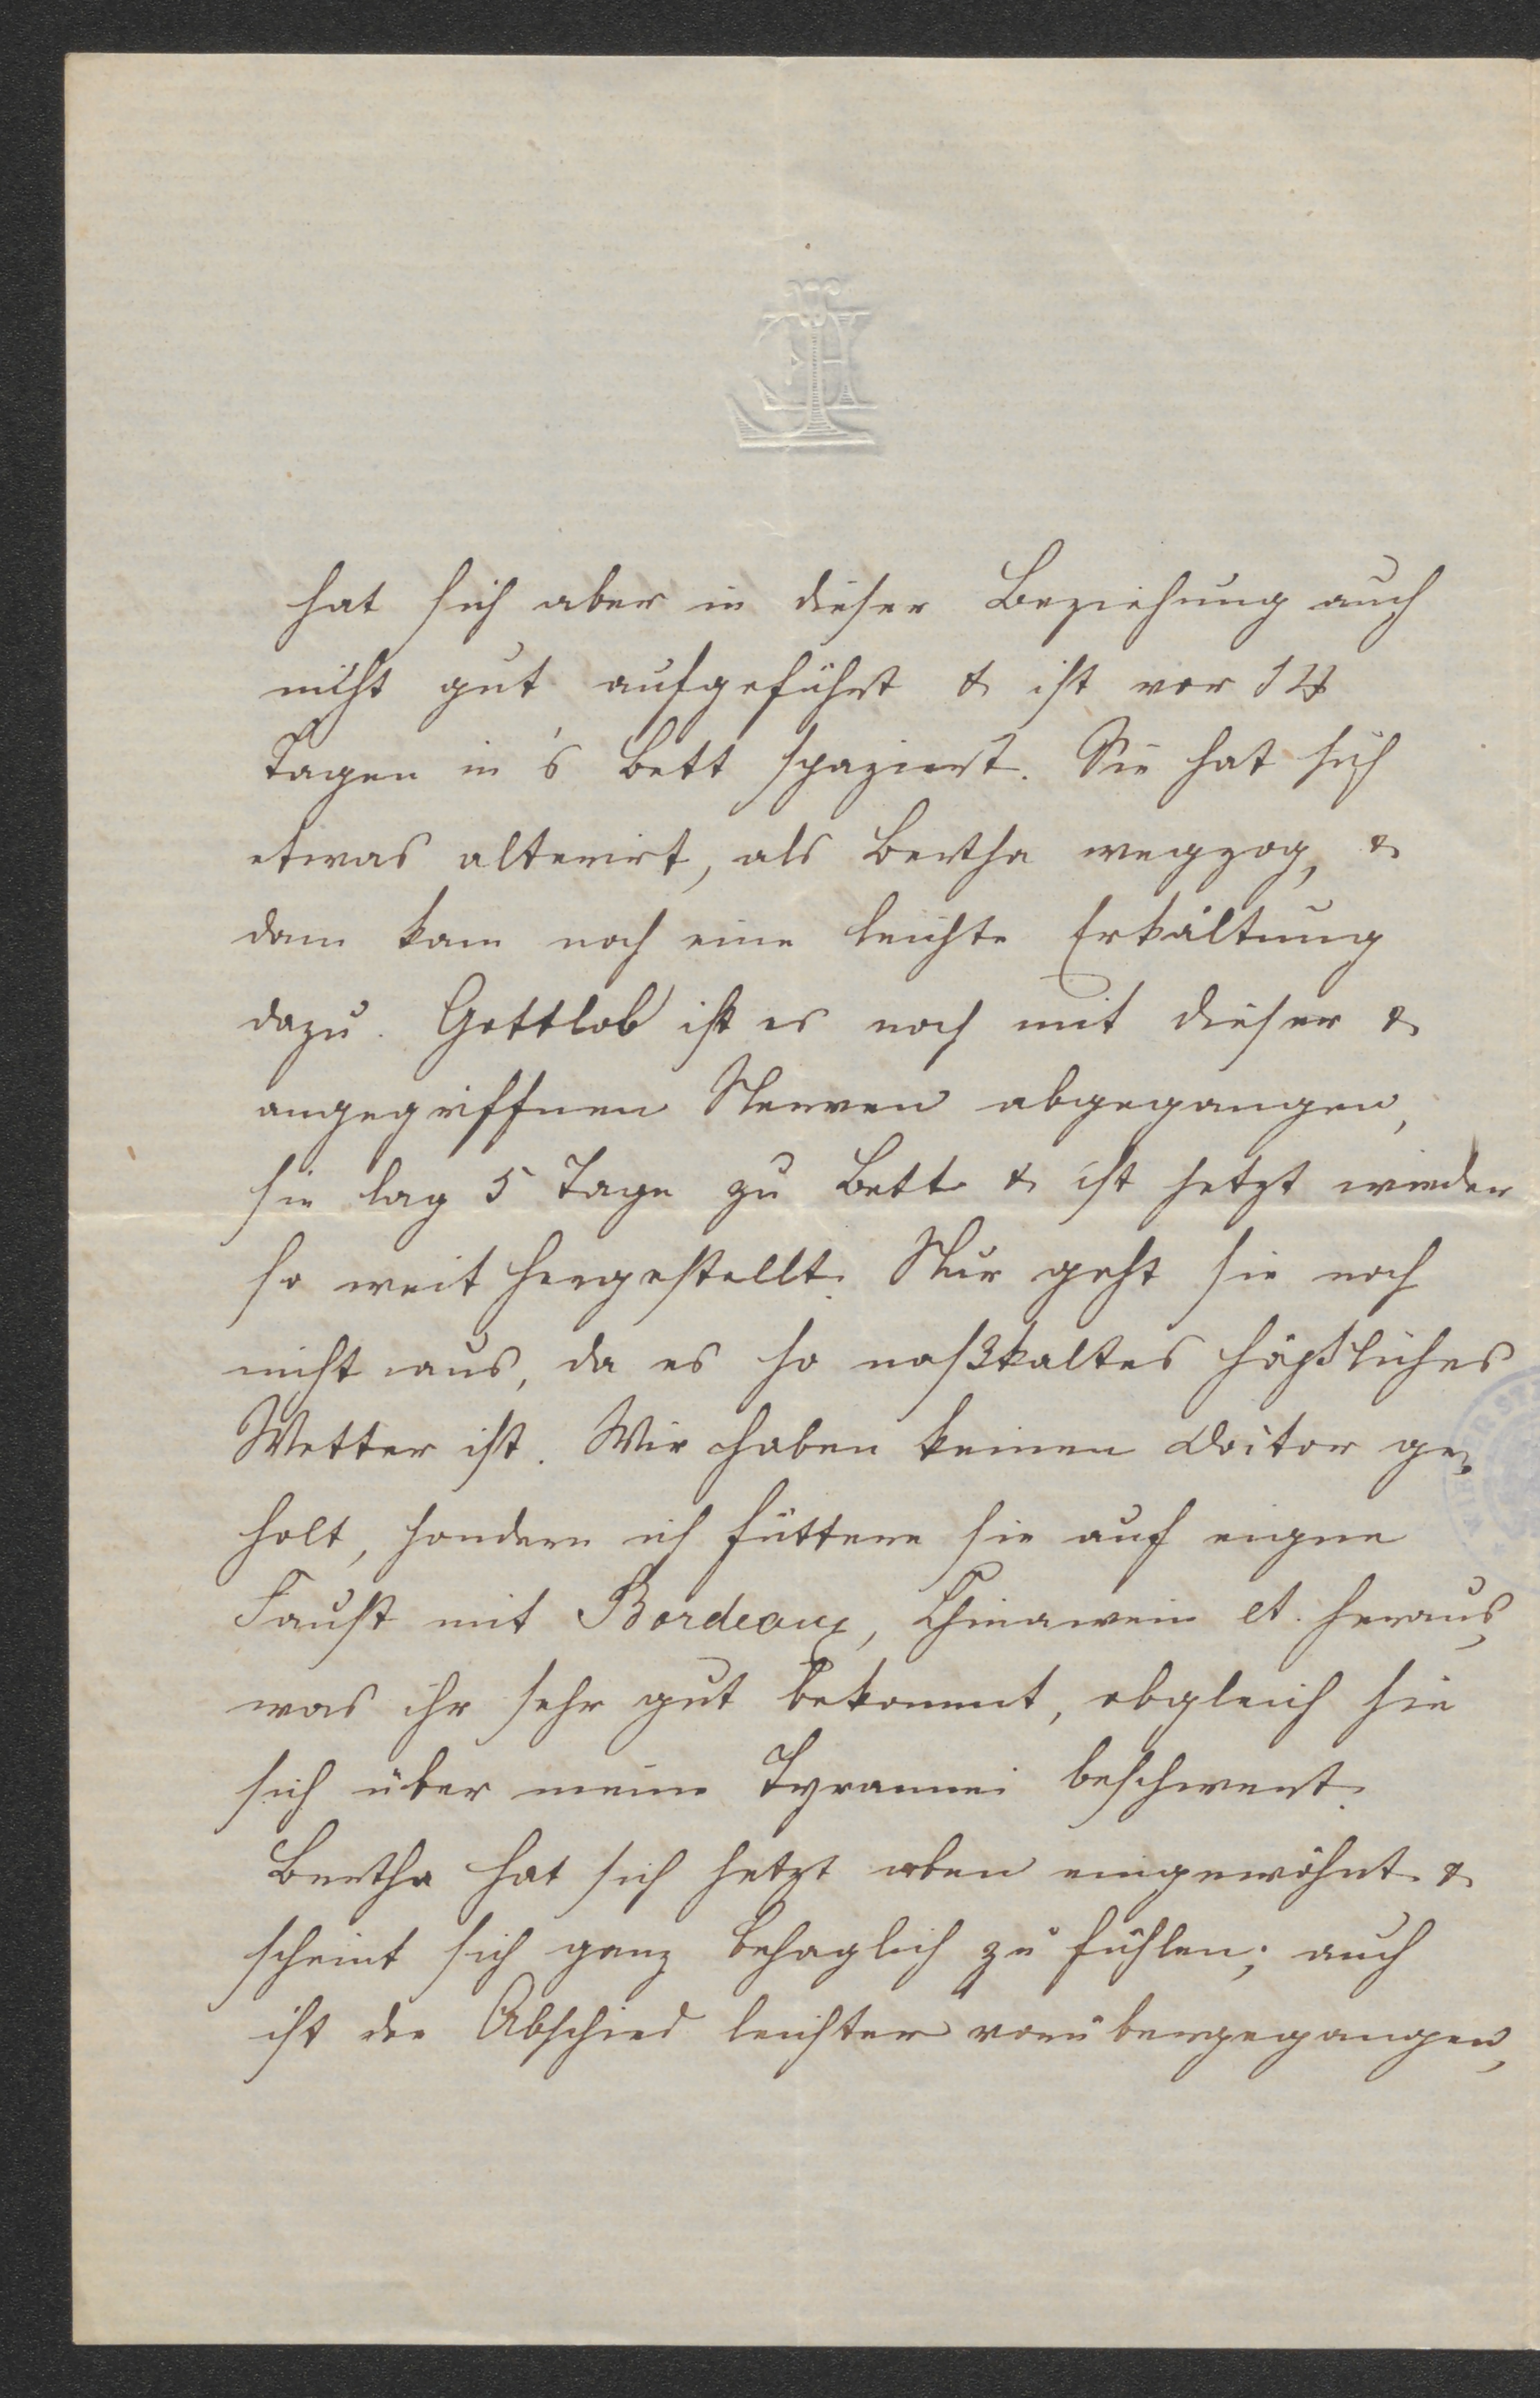 hat sich aber in dieser Beziehung auch
nicht gut aufgeführt & ist vor 14
Tagen in's Bett spaziert. Sie hat sich
etwas alterirt, als Bertha wegzog, &
dann kam noch eine leichte Erkältung
dazu. Gottlob ist es noch mit dieser &
angegriffnen Nerven abgegangen,
sie lag 5 Tage zu Bett & ist jetzt wieder
so weit hergestellt. Nur geht sie noch
nicht aus, da es so naßkaltes häßliches
Wetter ist. Wir haben keinen Doctor ge-
holt, sondern ich füttere sie auf eigne
Faust mit Bordeaux, Chinawein et. heraus,
was ihr sehr gut bekommt, obgleich sie
sich über meine Tyrannei beschwert.
Bertha hat sich jetzt oben eingewöhnt &
scheint sich ganz behaglich zu fühlen; auch
ist der Abschied leichter vorübergegangen,